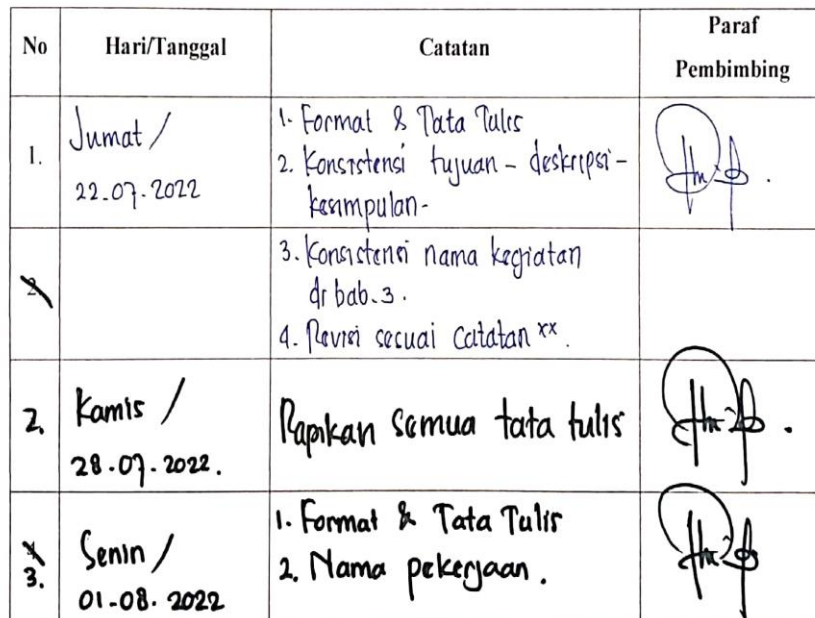 No Hari/Tanggal Catatan Paraf Pembimbing
1. Jumat / 22.07.2022
1. Format & Tata Tulis
2. Konsistensi tujuan - deskripsi -
kesimpulan-
3. Konsistensi nama kegiatan
di bab.3.
4. Revisi sesuai catatan xx.
2. Kamis / 28.07.2022.
Rapikan semua tata tulis
3. Senin / 01-08.2022
1. Format & Tata Tulis
2. Nama pekerjaan.